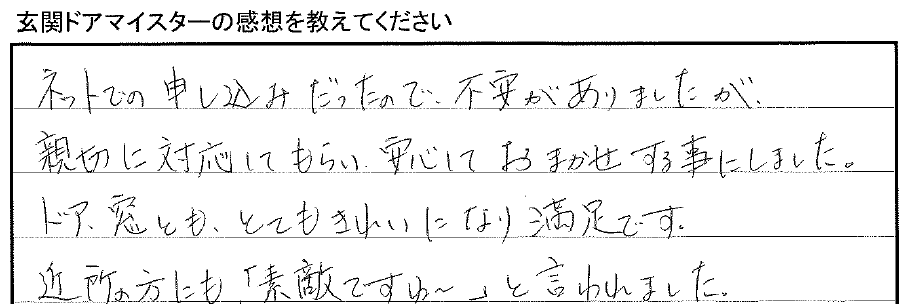 玄関ドアマイスターの感想を教えてください
ネットでの申し込みだったので、不安がありましたが、
親切に対応してもらい、安心しておまかせする事にしました。
ドア、窓とも、とてもきれいになり満足です。
近所の方にも「素敵ですね～」と言われました。